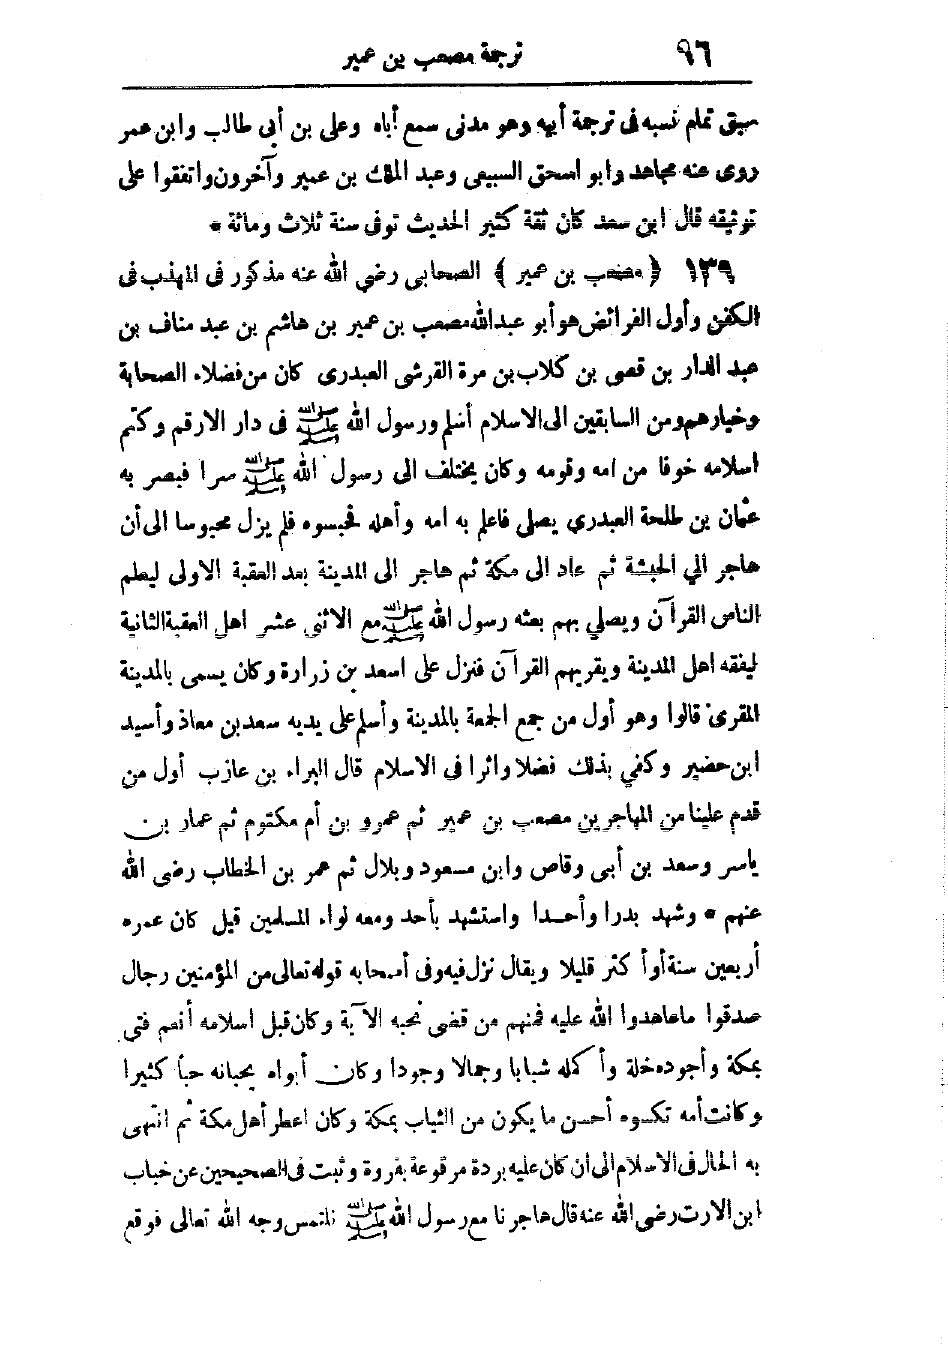 ٩٦
ترجمة مصعب بن عمير
سبق تمام نسبه فى ترجمة أبيه وهو مدنى سمع أباه وعلى بن أبي طالب وابن عمر
روى عنه مجاهد وابو اسحق السبيعى وعبد الملك بن عمير وآخرون واتفقوا على
توثيقه قال ابن سعد كان ثقة كثير الحديث توفى سنة ثلاث ومائة *
١٣٩ ﴿ مصعب بن عمير ﴾ الصحابى رضي الله عنه مذكور فى المهذب فى
الكفن وأول الفرائض هو أبو عبدالله مصعب بن عمير بن هاشم بن عبد مناف بن
عبد الدار بن قصى بن كلاب بن مرة القرشى العبدرى كان من فضلاء الصحابة
وخيارهم ومن السابقين الى الاسلام أسلم ورسول الله ﷺ فى دار الارقم وكتم
اسلامه خوفا من امه وقومه وكان يختلف الى رسول الله ﷺ سرا فبصر به
عثمان بن طلحة العبدري يصلي فاعلم به امه وأهله فحبسوه فلم يزل محبوسا الى أن
هاجر الي الحبشة ثم عاد الى مكة ثم هاجر الى المدينة بعد العقبة الاولى ليعلم
الناس القرآن ويصلي بهم بعثه رسول الله ﷺ مع الاثنى عشر اهل العقبة الثانية
ليفقه اهل المدينة ويقريهم القرآن فنزل على اسعد بن زرارة وكان يسمى بالمدينة
المقرئ قالوا وهو أول من جمع الجمعة بالمدينة وأسلم على يديه سعد بن معاذ وأسيد
ابن حضير وكفي بذلك فضلا واثرا فى الاسلام قال البراء بن عازب أول من
قدم علينا من المهاجرين مصعب بن عمير ثم عمرو بن أم مكتوم ثم عمار بن
ياسر وسعد بن أبى وقاص وابن مسعود وبلال ثم عمر بن الخطاب رضى الله
عنهم * وشهد بدرا وأحدا واستشهد بأحد ومعه لواء المسلمين قيل كان عمره
أربعين سنة أو أكثر قليلا ويقال نزل فيه وفى أصحابه قوله تعالى من المؤمنين رجال
صدقوا ماعاهدوا الله عليه فمنهم من قضى نحبه الآية وكان قبل اسلامه أنعم فتى
بمكة وأجوده خلة وأكمله شبابا وجمالا وجودا وكان أبواه يحبانه حبا كثيرا
وكانت أمه تكسوه أحسن ما يكون من الثياب بمكة وكان اعطر أهل مكة ثم انتهى
به الحال فى الاسلام الى ان كان عليه بردة مرقوعة بفروة وثبت فى الصحيحين عن خباب
ابن الارت رضى الله عنه قال هاجرنا مع رسول الله ﷺ نلتمس وجه الله تعالى فوقع